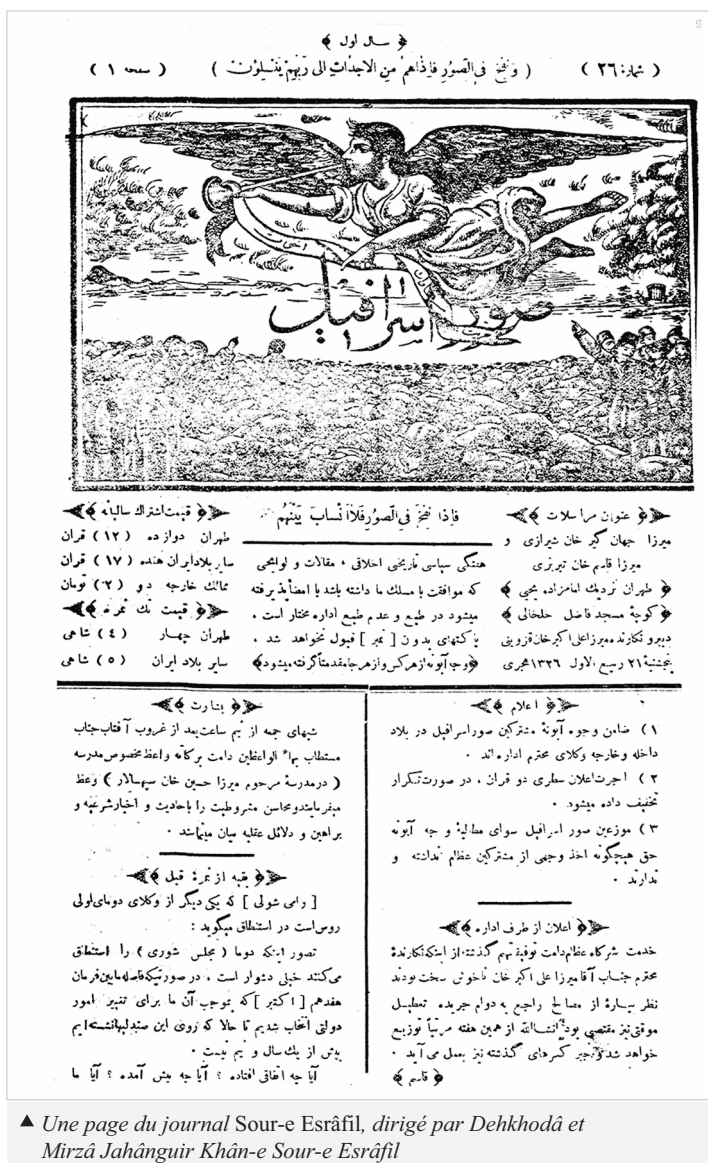 ﴿ سال اول ﴾
( شماره ٢٦ )
( وَ نُفِخَ فِی الصّورِ فَاِذٰاهُمْ مِنَ الاَجْداثِ اِلی رَبِّهِمْ یَنْسِلوُن )
( صفحه ١ )
صور اسرافیل
﴿ عنوان مراسلات ﴾
میرزا جهان گیر خان شیرازی و
میرزا قاسم خان تبریزی
﴿ طهران نزدیك امامزاده یحیی ﴾
﴿ كوچهٔ مسجد فاضل خلخالی ﴾
دبیر و نگارنده میرزا علی اكبر خان قزوینی
پنجشنبهٔ ٢١ ربیع الاول ١٣٢٦ هجری
فَاِذا نُفِخَ فِی الصّورِ فَلاٰ اَنْسابَ بَیْنَهُم
هفتگی سیاسی تاریخی اخلاقی ، مقالات و لوایحی
كه موافقت با مسلك ما داشته باشد با امضا پذیرفته
میشود در طبع و عدم طبع اداره مختار است ،
پاكتهای بدون [ تمبر ] قبول نخواهد شد ،
﴿ وجه آبونه از هر كس و از هر جا مقدمتاً گرفته میشود ﴾
﴿ قیمت اشتراك سالیانه ﴾
طهران دوازده ( ١٢ ) قران
سایر بلاد ایران هفده ( ١٧ ) قران
ممالك خارجه دو ( ٢ ) تومان
﴿ قیمت تك نمره ﴾
طهران چهار ( ٤ ) شاهی
سایر بلاد ایران ( ٥ ) شاهی
﴿ اعلام ﴾
١ ) ضامن وجوه آبونهٔ مشتركین صور اسرافیل در بلاد
داخله و خارجه وكلای محترم اداره اند .
٢ ) اجرت اعلان سطری دو قران ، در صورت تكرار
تخفیف داده میشود .
٣ ) موزعین صور اسرافیل سوای مطالبهٔ وجه آبونه
حق هیچگونه اخذ وجهی از مشتركین عظام نداشته و
ندارند .
﴿ اعلان از طرف اداره ﴾
خدمت شركاء عظام دامت توفیقاتهم گذشته از اینكه نگارندهٔ
محترم جناب آقا میرزا علی اكبر خان ناخوش سخت بودند
نظر بپارهٔ از مصالح راجع به دوام جریده تعطیل
موقتی نیز مقتضی بود انشاالله از همین هفته مرتباً توزیع
خواهد شد و جبر كسرهای گذشته نیز بعمل می آید .
﴿ قاسم ﴾
﴿ بشارت ﴾
شبهای جمعه از نیم ساعت بعد از غروب آفتاب جناب
مستطاب بهاء الواعظین دامت بركاته واعظ مخصوص مدرسه
( در مدرسهٔ مرحوم میرزا حسین خان سپهسالار ) وعظ
میفرمایند و محاسن مشروطیت را باحادیث و اخبار شرعیه و
براهین و دلائل عقلیه بیان مینمایند .
﴿ بقیه از نمرهٔ قبل ﴾
[ رامی شولی ] كه یكی دیگر از وكلای دومای اولی
روس است در استنطاق میگوید :
تصور اینكه دوما ( مجلس شوری ) را استنطاق
می كنند خیلی دشوار است ، در صورتیكه فاصله مابین فرمان
هفدهم [ اكتبر ] كه بموجب آن ما برای تغییر امور
دولتی انتخاب شدیم تا حالا كه روی این صندلیها نشسته ایم
بیش از یك سال و نیم نیست .
آیا چه اتفاقی افتاده ؟ آیا چه پیش آمده ؟ آیا ما
▲ Une page du journal Sour-e Esrâfil, dirigé par Dehkhodâ et
Mirzâ Jahânguir Khân-e Sour-e Esrâfil